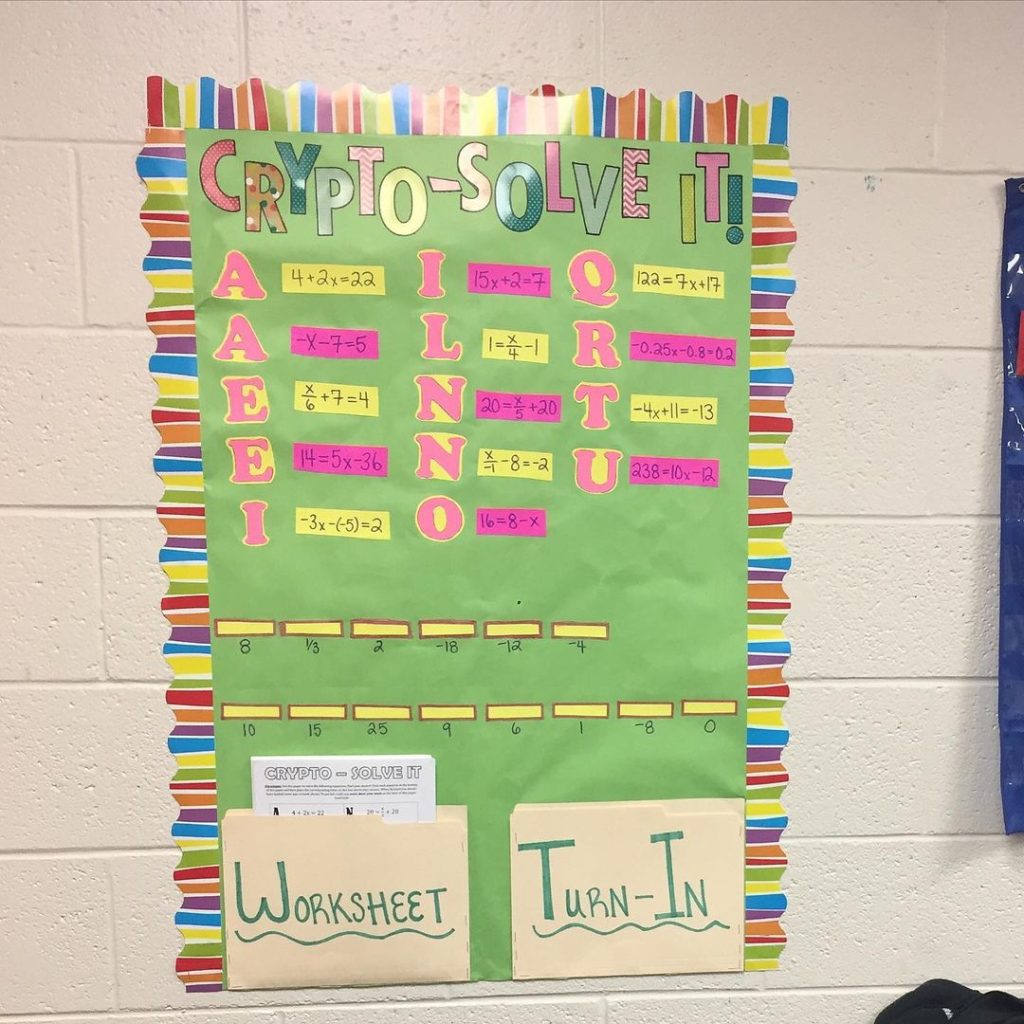 CRYPTO-SOLVE IT!
A 4+2x=22
A -x-7=5
E x/6+7=4
E 14=5x-36
I -3x-(-5)=2
I 15x+2=7
L 1=x/4-1
N 20=x/5+20
N x/-1-8=-2
O 16=8-x
Q 122=7x+17
R -0.25x-0.8=0.2
T -4x+11=-13
U 238=10x-12
8 1/3 2 -18 -12 -4
10 15 25 9 6 1 -8 0
CRYPTO – SOLVE IT
A 4 + 2x = 22 N 20 = x/5 + 20
WORKSHEET
TURN-IN